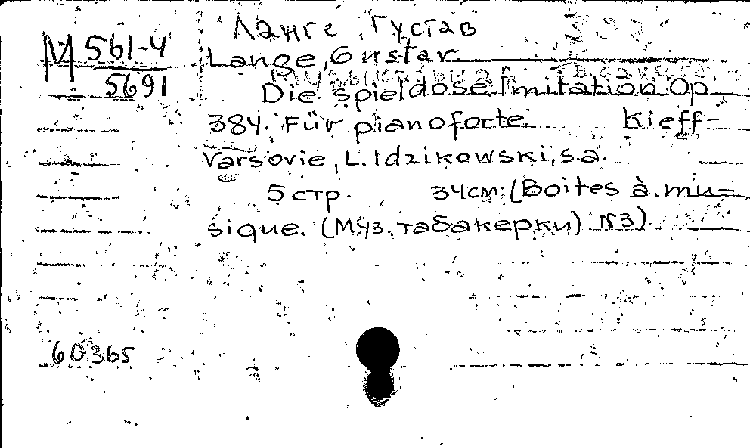 Ланге, Густав
М 561-4
5691
Lange, Gustav.
Die spieldose. Imitation. Op.
384. Für pianoforte. Kieff-
Varsovie, L. Idzikowski, s.a.
5 стр. 34 см. (Boites à mu-
sique. (Муз. табакерки) N3)
60365